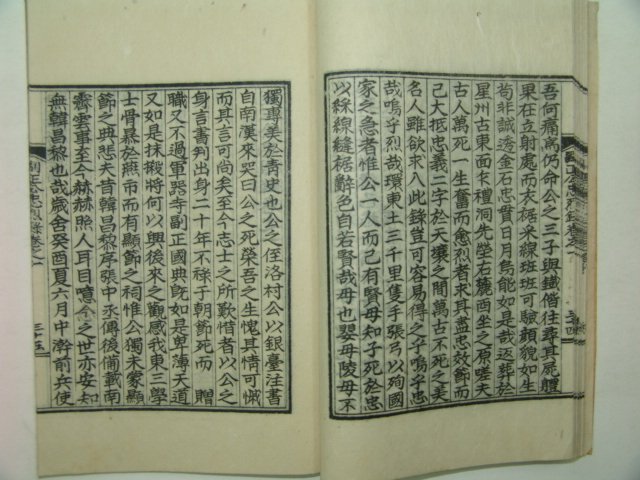 吾何痛焉仍命公之三子與鐵偕往尋其屍體
果在立射處而衣裾采線班班可驗顔貌如生
苟非誠透金石忠貫日月烏能如是哉返葬於
星州古東面乍禮洞先塋石麓酉坐之原嗟夫
古人萬死一生奮而愈烈者求其盡忠效節而
已大抵忠義二字於天壤之間萬古不死之美
名人雖欲求入此錄豈可容易得之乎嗚乎壯
哉嗚乎烈哉環東土三千里隻手張弓以殉國
家之急者惟公一人而己有賢母知子死於忠
以綵線縫裾辭色自若賢哉母也嬰母陵母不
獨專美於青史也公之侄洛村公以銀臺注書
自南漢來哭曰公之死榮吾之生愧其情可慽
而其言可尚矣至今志士之所歎惜者以公之
身言書判出身二十年不祿子朝節死而 贈
職又不過軍器寺副正國典旣如是卑薄天道
又如是抹搬將何以興後來之觀感我東三學
士骨暴於燕市而有顯節之祠惟公獨未蒙顯
節之典悲夫昔韓昌黎序張中丞傳後備載南
霽雲事至今赫赫照人耳目噫今之世亦安知
無韓昌黎也哉歲舍癸酉夏六月中澣前兵使